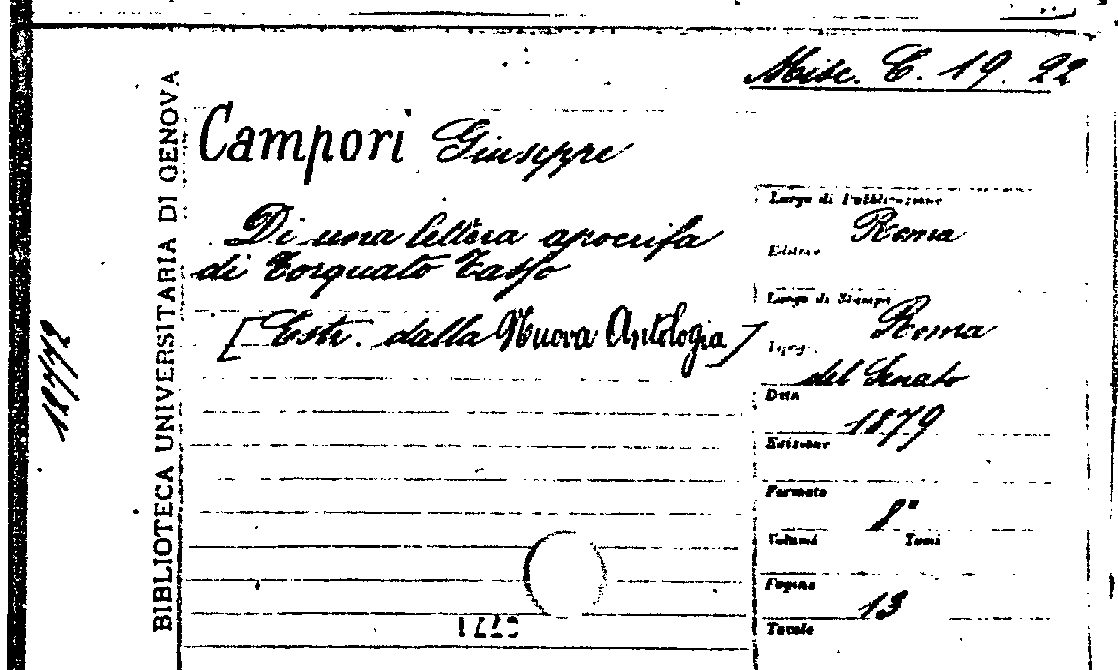 Misc. C. 19. 22
BIBLIOTECA UNIVERSITARIA DI GENOVA
Campori Giuseppe
Di una lettera apocrifa
di Torquato Tasso
[Estr. dalla Nuova Antologia]
Luogo di Pubblicazione
Roma
Editore
Luogo di Stampa
Roma
del Senato
Data
1879
Edizione
Formato
8°
Volumi Tomi
Pagine
13
Tavole